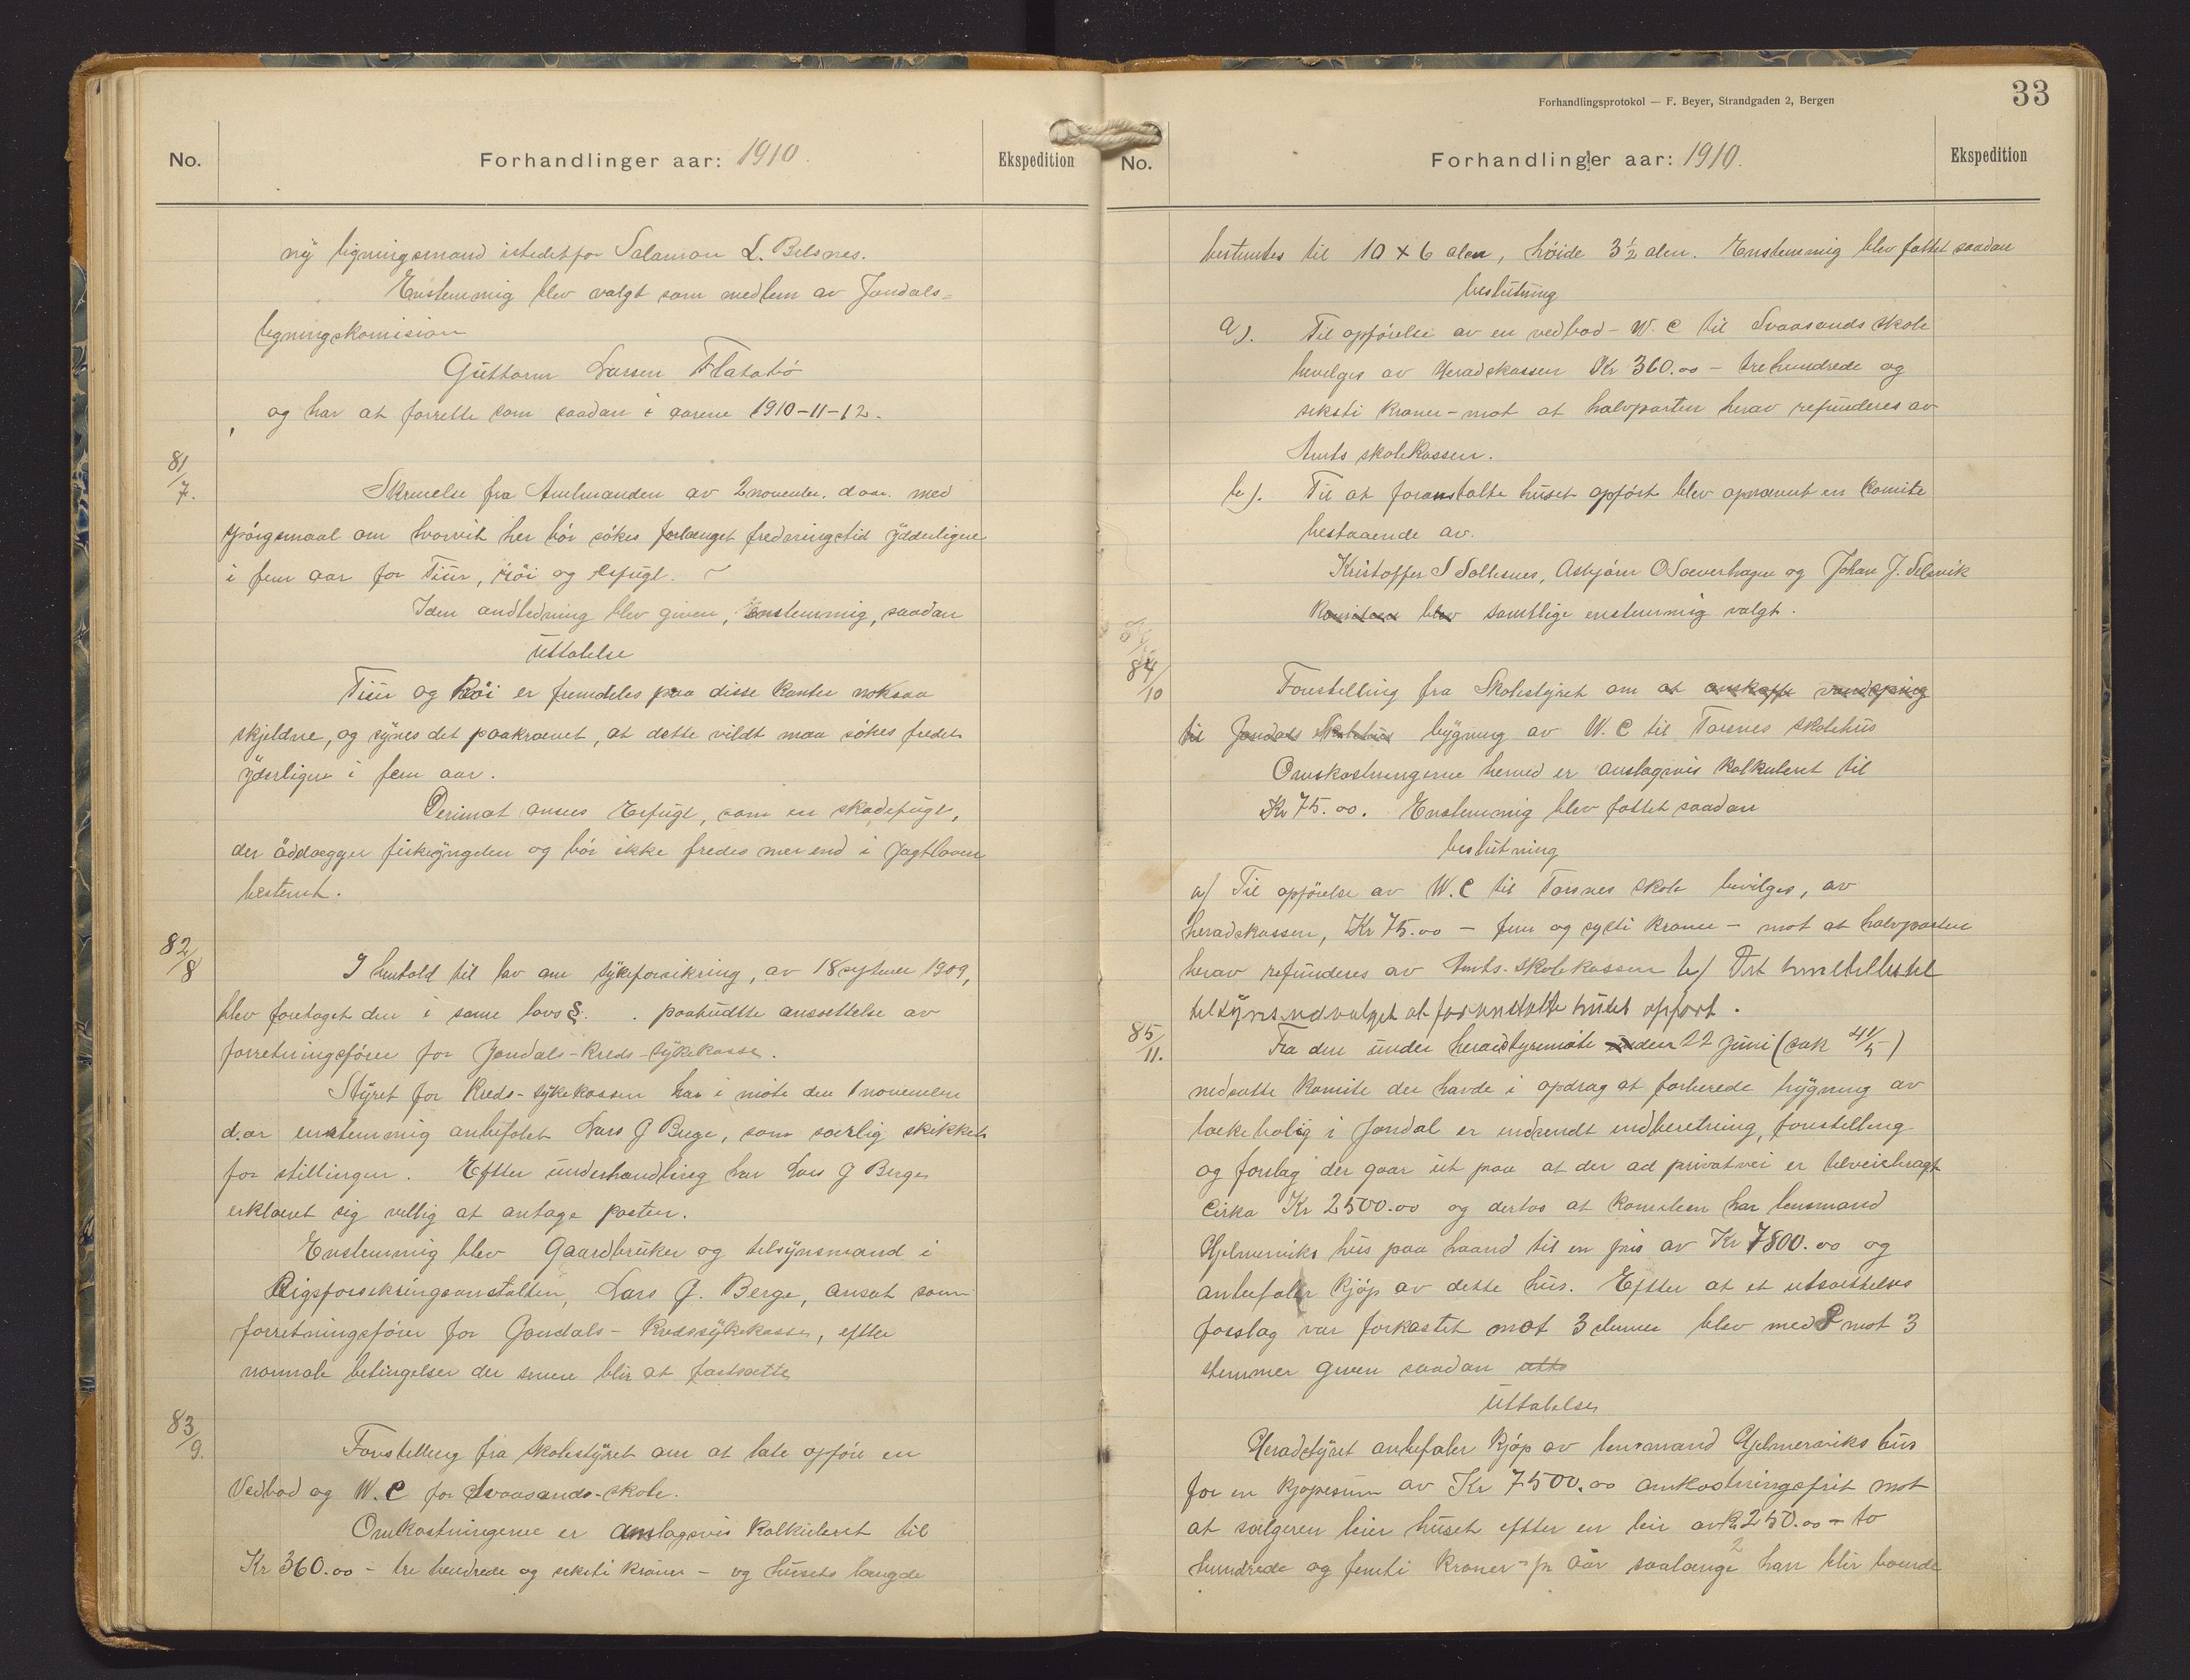 No.
Forhandlinger aar: 1910.
Ekspedition
ny ligningsmand istedetfor Salamon L. Belsnes.
Enstemmig blev valgt som medlem av Jondals-
ligningskomision
Guttorm Larsen Flatabö
og har at forrette som saadan i aarene 1910-11-12.
81/7.
Skrivelse fra Amtmanden av 2 november. d. aar. med
spörgsmaal om hvorvit her bör sökes forlænget fredningstid ydderligere
i fem aar for Tiur, Röi og Erfugl.
I den andledning blev given, Enstemmig, saadan
Uttalelse
Tiur og Röi er fremdeles paa disse kanter noksaa
skjeldne, og synes det paakrævet, at dette vildt maa sökes fredet
yderligere i fem aar.
Derimot anses Erfugl, som en skadefugl,
der ödelægger fiskeyngelen og bör ikke fredes mer end i Jagtloven
bestemt.
82/8
I henhold til lov om sykeforsikring, av 18 september 1909,
blev foretaget den i same lovs §. . paabudte ansættelse av
forretningsförer for Jondals-Kreds-sykekasse.
Styret for Kreds-sykekassen har i möte den 1 november
d. ar enstemmig anbefalet Lars G Berge, som særlig skikket
for stillingen. Efter underhandling har Lars G Berge
erklæret sig villig at antage posten.
Enstemmig blev Gaardbruker og tilsynsmand i
Rigsforsikringsanstalten, Lars G. Berge, ansat som
forretningsförer for Jondals-Kredssykekasse, efter
normale betingelser der senere blir at fastsætte
83/9.
Forestilling fra skolestyret om at late opföre en
Vedbod og W.C for Svaasands-skole.
Omkostningerne er anslagsvis kalkuleret til
Kr 360.00 - tre hundrede og seksti kroner - og husets længde
Forhandlingsprotokol — F. Beyer, Strandgaden 2, Bergen
33
No.
Forhandlinger aar: 1910.
Ekspedition
bestemtes til 10 x 6 alen, höide 3 1/2 alen. Enstemmig blev fattet saadan
beslutning
a). Til opförelse av en vedbod - W.C til Svaasands skole
bevilges av Heradskassen Kr 360.00 - tre hundrede og
seksti kroner - mot at halvparten herav refunderes av
Amts skolekassen.
b). Til at foranstalte huset opfört blev opnævnt en komite
bestaaende av.
Kristoffer S Soltesnes, Asbjörn O Sæverhagen og Johan J. Selsvik
Komiteen blev samtlige enstemmig valgt.
84/10
Forestilling fra Skolestyret om at anskaffe vandspring
til Jondals Skolehus bygning av W.C til Torsnes skolehus
Omkostningerne herved er anslagsvis kalkuleret til
Kr 75.00. Enstemmig blev fattet saadan
beslutning
a) Til opförelse av W.C til Torsnes skole bevilges, av
heradskassen, Kr 75.00 - fem og sytti kroner - mot at halvparten
herav refunderes av Amts-skolekassen b) Det
tilsynsudvalget at foranstalte huset opfört.
85/11.
Fra den under heradstyremöte under 22 juni (sak 41/5)
nedsatte komite der havde i opdrag at forberede bygning av
lækebolig i Jondal er indsendt indberetning, forestilling
og forslag der gaar ut paa at der ad privat vei er tilveiebragt
Cirka Kr 2500.00 og dertos at komiteen har lensmand
Hjelmeviks hus paa haand til en pris av Kr 7800.00 og
anbefaler kjöp av dette hus. Efter at et utsættelses
forslag var forkastet mot 3 stemmer blev med mot 3
stemmer given saadan utta
Uttalelse
Heradstyret anbefaler kjöp av lensmand Hjelmeviks hus
for en kjöpesum av Kr 7500.00 omkostningsfrit mot
at sælgeren leier huset efter en leie av Kr 250.00 - to
hundrede og femti kroner - pr aar saalænge han blir boende